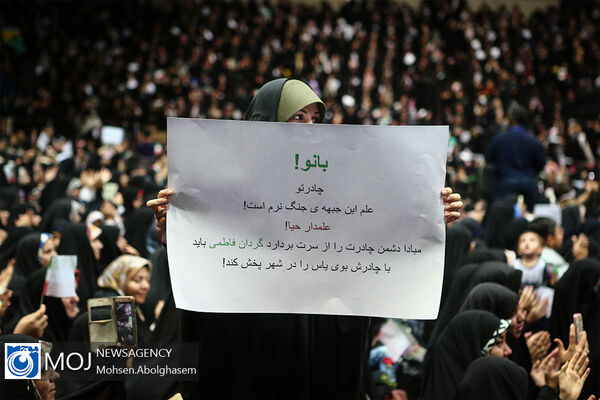 بانو!
چادرتو
علم این جبهه ی جنگ نرم است!
علمدار حیا!
مبادا دشمن چادرت را از سرت بردارد گردان فاطمی باید
با چادرش بوی یاس را در شهر پخش کند!
MOJ NEWSAGENCY
Mohsen.Abolghasem